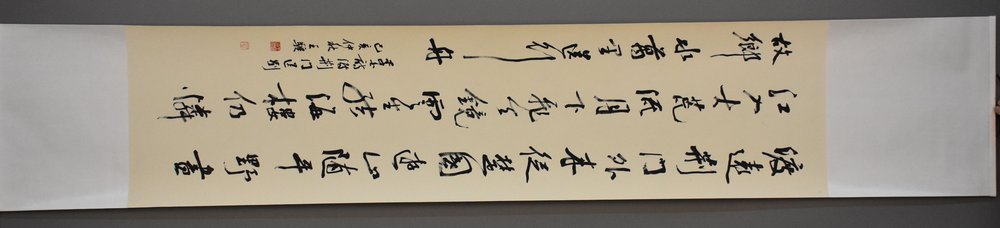 渡遠荆門外来從楚國遊山隨平野盡
江入大荒流月下飛天鏡雲生結海樓仍憐
故鄉水萬里送行舟
李白詩渡荆門送別